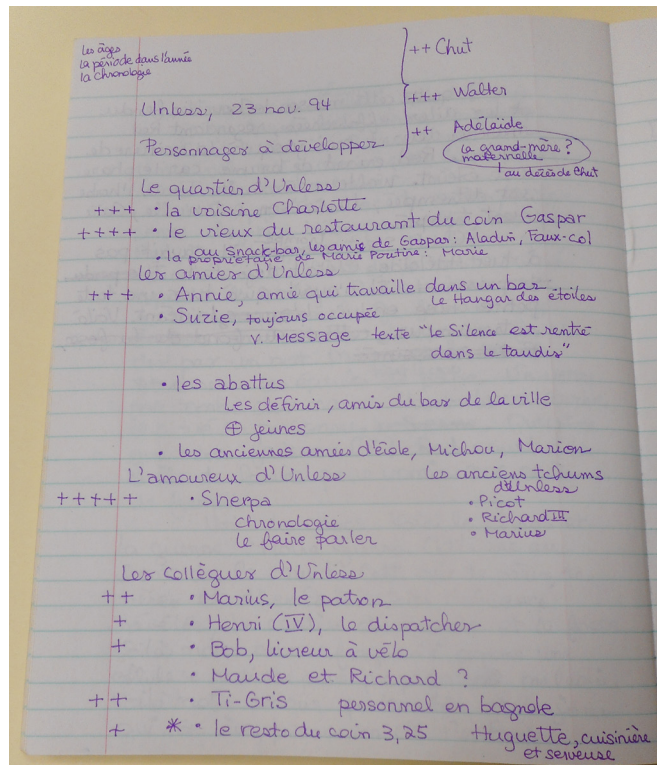 les âges
la période dans l'année
la chronologie
++ Chut
+++ Walter
++ Adélaïde
la grand-mère?
maternelle
au décès de Chut
Unless, 23 nov. 94
Personnages à développer
Le quartier d'Unless
+++ • la voisine Charlotte
++++ • le vieux du restaurant du coin Gaspar
au snack-bar, les amis de Gaspar: Aladin, Faux-col
• la propriétaire de Marie Poutine: Marie
Les amies d'Unless
+++ • Annie, amie qui travaille dans un bar
Le Hangar des étoiles
• Suzie, toujours occupée
V. Message texte "le Silence est rentré
dans le taudis"
• les abattus
Les définir, amis du bar de la ville
⊕ jeunes
• les anciennes amies d'école, Michou, Marion
L'amoureux d'Unless
+++++ • Sherpa
chronologie
le faire parler
les anciens tchums
d'Unless
• Picot
• Richard III
• Marius
Les collègues d'Unless
++ • Marius, le patron
+ • Henri (IV), le dispatcher
+ • Bob, livreur à vélo
• Maude et Richard ?
++ • Ti-Gris personnel en bagnole
+ * • le resto du coin 3,25 Huguette, cuisinière
et serveuse